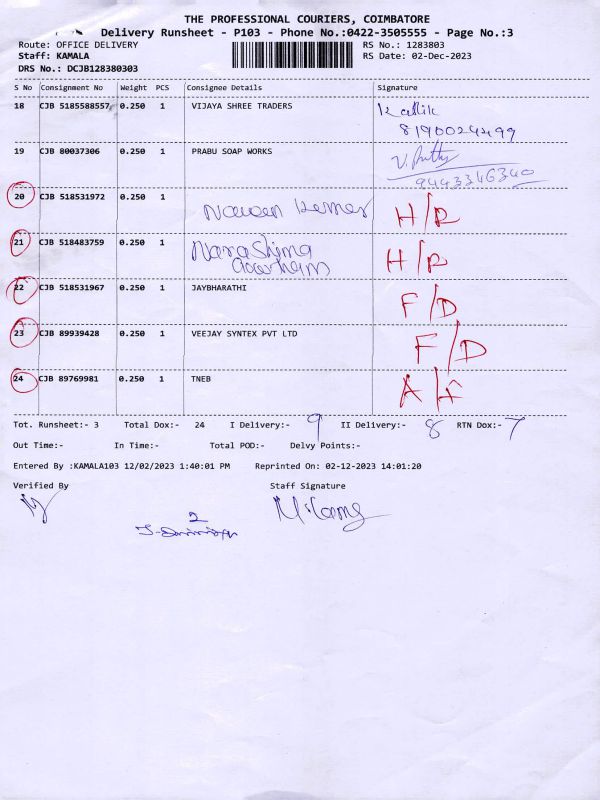 THE PROFESSIONAL COURIERS, COIMBATORE
Delivery Runsheet - P103 - Phone No.:0422-3505555 - Page No.:3
Route: OFFICE DELIVERY RS No.: 1283803
Staff: KAMALA RS Date: 02-Dec-2023
DRS No.: DCJB128380303
S No Consignment No Weight PCS Consignee Details Signature
18 CJB 5185588557 0.250 1 VIJAYA SHREE TRADERS Kathik
8190024499
19 CJB 80037306 0.250 1 PRABU SOAP WORKS
9443346340
20 CJB 518531972 0.250 1 Naveen Kumar H/R
21 CJB 518483759 0.250 1 Narashima H/R
22 CJB 518531967 0.250 1 JAYBHARATHI F/D
23 CJB 89939428 0.250 1 VEEJAY SYNTEX PVT LTD F/D
24 CJB 89769981 0.250 1 TNEB A/A
Tot. Runsheet:- 3 Total Dox:- 24 I Delivery:- 9 II Delivery:- 8 RTN Dox:- 7
Out Time:- In Time:- Total POD:- Delvy Points:-
Entered By :KAMALA103 12/02/2023 1:40:01 PM Reprinted On: 02-12-2023 14:01:20
Verified By Staff Signature
2